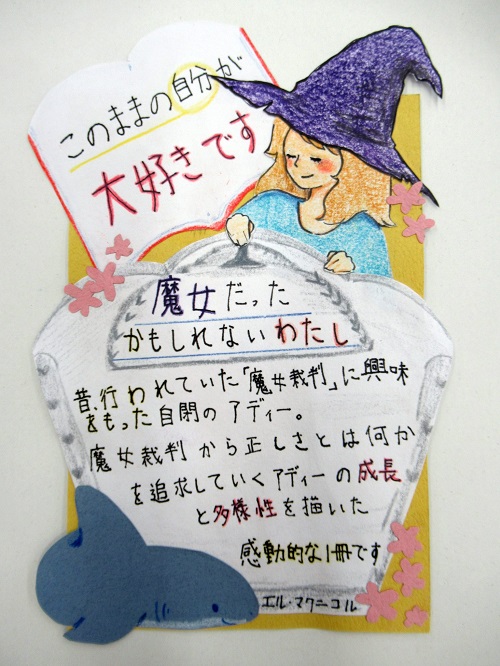 このままの自分が
大好きです
魔女だった
かもしれないわたし
昔、行われていた「魔女裁判」に興味
をもった自閉のアディー。
魔女裁判から正しさとは何か
を追求していくアディーの成長
と多様性を描いた
感動的な1冊です
エル・マクニコル